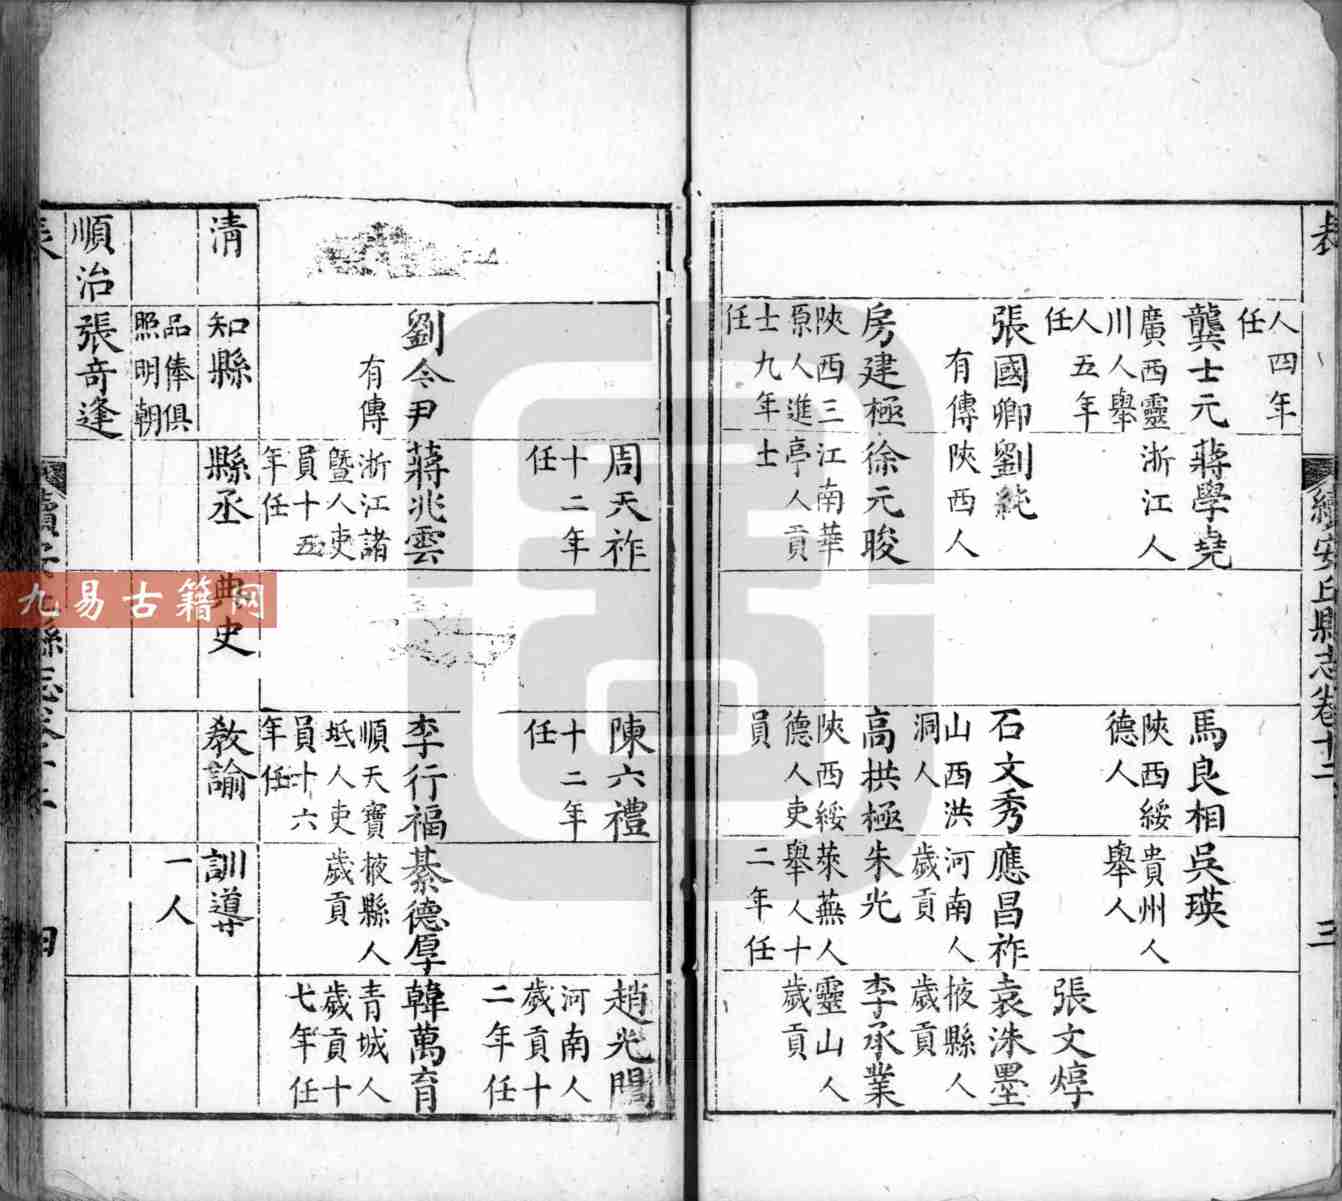 表
續安丘縣志卷十二
三
人四年
任
龔士元
廣西靈
川人舉
人五年
任
張國卿
有傳
房建極
陝西三
原人進
士九年
任
蔣學堯
浙江人
劉純
陝西人
徐元晙
江南華
亭人貢
士
馬良相
陝西綏
德人
石文秀
山西洪
洞人
高拱極
陝西綏
德人吏
員
吳瑛
貴州人
舉人
應昌祚
河南人
歲貢
朱光
萊蕪人
舉人十
二年任
張文焞
袁洙墨
掖縣人
歲貢
李承業
靈山人
歲貢
劉令尹
有傳
周天祚
十二年
任
蔣兆雲
浙江諸
暨人吏
員十五
年任
陳六禮
十二年
任
李行福
順天寶
坻人吏
員十六
年任
綦德厚
掖縣人
歲貢
趙光閶
河南人
歲貢十
二年任
韓萬育
青城人
歲貢十
七年任
清
知縣
縣丞
典史
教諭
訓導
品俸俱
照明朝
一人
順治
張奇逢
表
續安丘縣志卷十二
四
九易古籍网